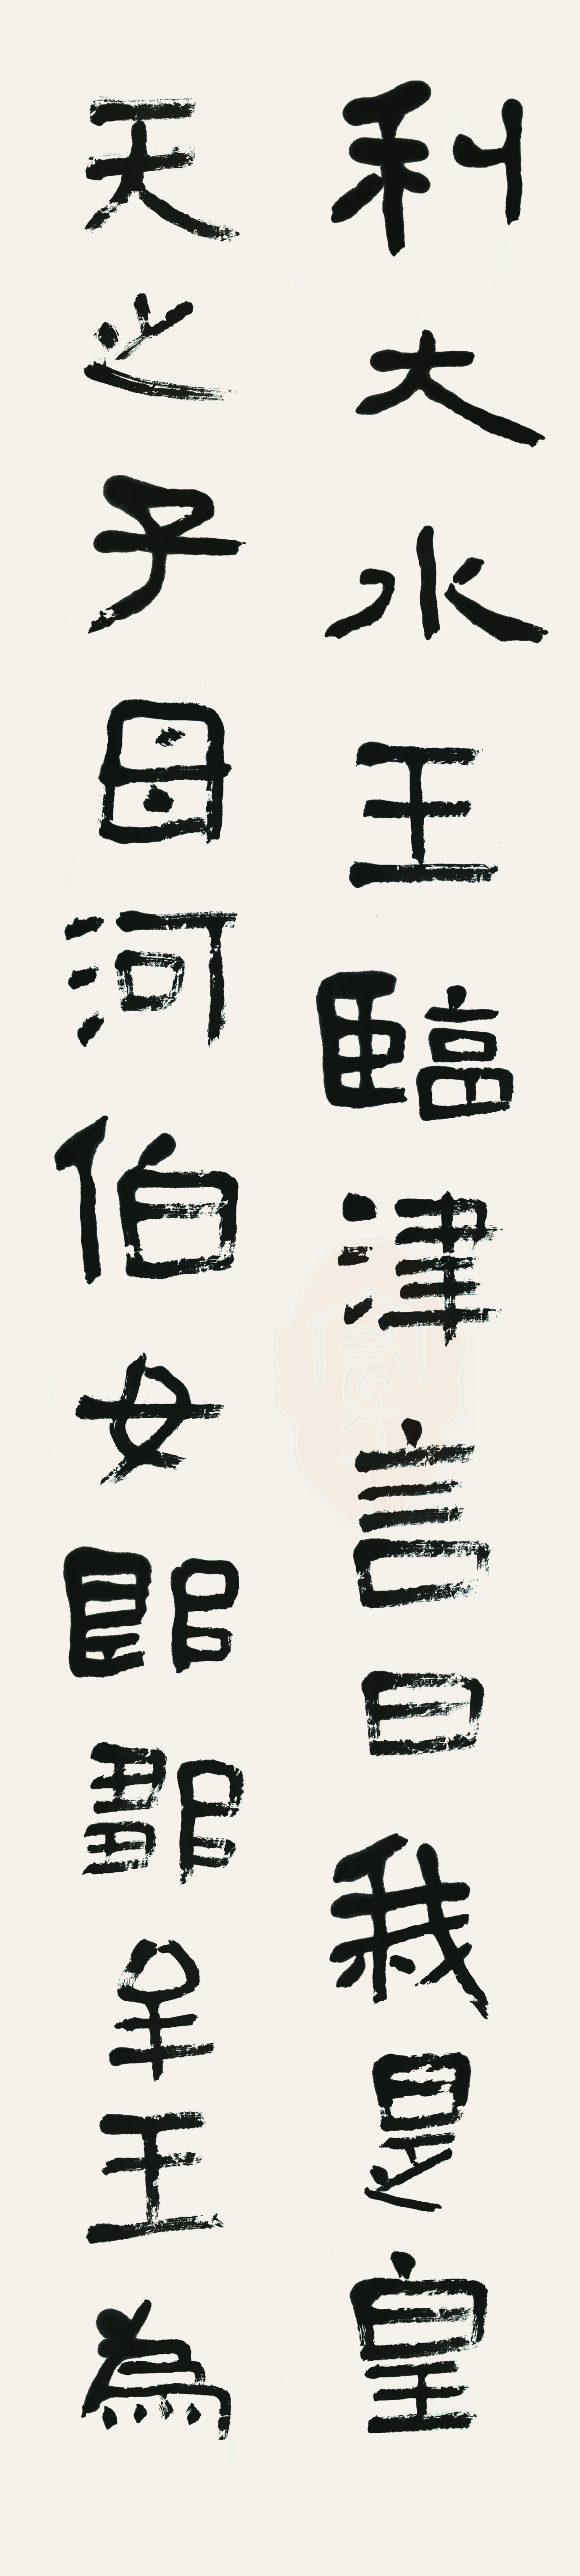 利大水王臨津言曰我是皇
天之子母河伯女郎鄒牟王為